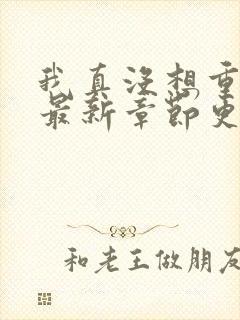 我真没想重
最新章节更
和老王做朋友